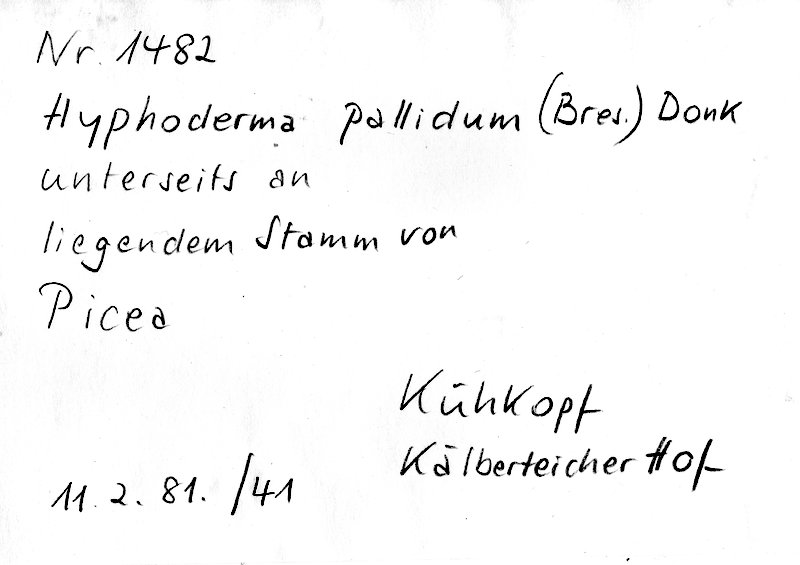 Nr. 1482
Hyphoderma pallidum (Bres.) Donk
unterseits an
liegendem Stamm von
Picea
Kühkopf
Kälberteicher Hof
11. 2. 81. /41